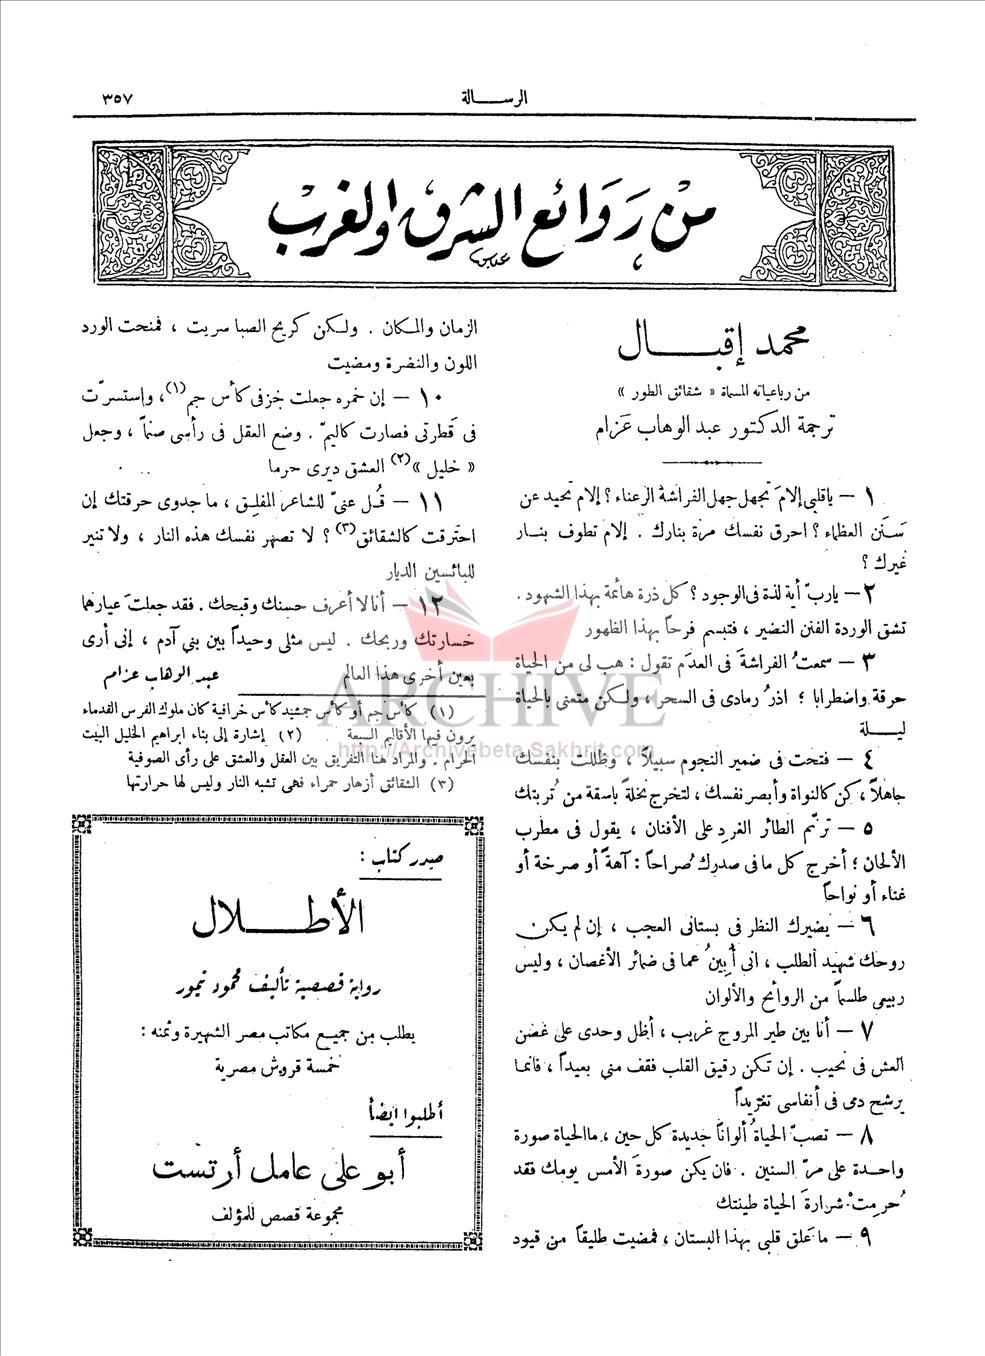 الرسالة
٣٥٧
من روائع الشرق والغرب
محمد إقبال
من رباعياته المسماة « شقائق الطور »
ترجمة الدكتور عبد الوهاب عزام
١ — ياقلبى إلامَ تجهل جهل الفراشة الرعناء؟ إلام تحيد عن
سَنَن العظماء؟ احرق نفسك مرة بنارك . إلام تطوف بنار
غيرك؟
٢ — يارب أية لذة فى الوجود؟ كل ذرة هائمة بهذا الشهود .
تشق الوردة الفنن النضير ، فتبسم فرحاً بهذا الظهور
٣ — سمعتُ الفراشةَ فى العدم تقول : هب لى من الحياة
حرقة واضطرابا ؛ اذرُ رمادى فى السحر ، ولكن متعنى بالحياة
ليلة
٤ — فتحت فى ضمير النجوم سبيلاً ، وظللت بنفسك
جاهلاً ، كن كالنواة وأبصر نفسك ، لتخرج نخلةً باسقة من تُربتك
٥ — ترنّم الطائر الغرِد على الأفنان ، يقول فى مطرب
الألحان ؛ أخرج كل ما فى صدرك صُراحاً : آهةً أو صرخة أو
غناء أو نواحاً
٦ — يضيرك النظر فى بستانى العجب ، إن لم يكن
روحك شهيد الطلب ، انى أُبينُ عما فى ضمائر الأغصان ، وليس
ربيعى طلسماً من الروائح والألوان
٧ — أنا بين طير المروج غريب ، أظل وحدى على غضن
العش فى نحيب . إن تكن رقيق القلب فقف منى بعيداً ، فانما
يرشح دمى فى أنفاسى تغريداً
٨ — تصبّ الحياةُ ألواناً جديدة كل حين ، ما الحياة صورة
واحدة على مرّ السنين . فان يكن صورةَ الأمس يومك فقد
حُرمتْ شرارةَ الحياة طينتك
٩ — ما عَلق قلبى بهذا البستان ، فمضيت طليقاً من قيود
الزمان والمكان . ولكن كريح الصبا سريت ، فمنحت الورد
اللون والنضرة ومضيت
١٠ — إن خمره جعلت خزفى كأس جم(١) ، وإستسرّت
فى قَطرتى فصارت كاليمّ . وضع العقل فى رأسى صنماً ، وجعل
« خليل »(٢) العشق ديرى حرما
١١ — قُل عنىّ للشاعر المفلِق ، ما جدوى حرقتك إن
احترقت كالشقائق(٣)؟ لا تصهر نفسك هذه النار ، ولا تنير
للبائسين الديار
١٢ — أنا لا أعرف حسنك وقبحك . فقد جعلتَ عيارهما
خسارتك وربحك . ليس مثلى وحيداً بين بنى آدم ، إنى أرى
بعين أخرى هذا العالم
عبد الوهاب عزام
(١) كأس جم أو كأس جمشيد كأس خرافية كان ملوك الفرس القدماء
يرون فيها الأقاليم السبعة (٢) إشارة إلى بناء ابراهيم الخليل البيت
الحرام . والمراد هنا التفريق بين العقل والعشق على رأى الصوفية
(٣) الشقائق أزهار حمراء فهى تشبه النار وليس لها حرارتها
صدر كتاب :
الأطلال
رواية قصصية تأليف محمود تيمور
يطلب من جميع مكاتب مصر الشهيرة وثمنه :
خمسة قروش مصرية
أطلبوا أيضاً
أبو على عامل أرتست
مجموعة قصص للمؤلف
ARCHIVE
http://Archivebeta.Sakhrit.com